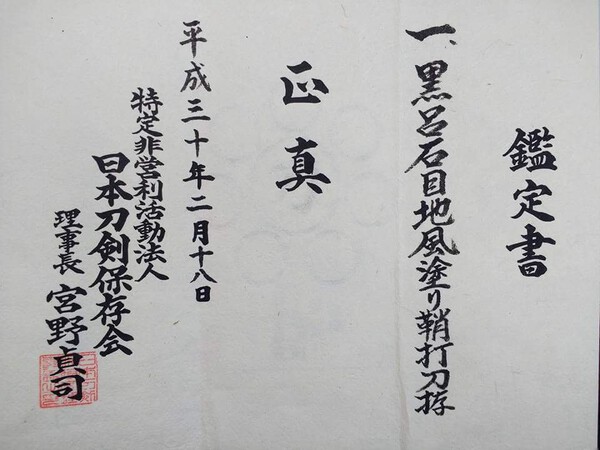 鑑定書
一、黒呂石目地風塗り鞘打刀拵
正真
平成三十年二月十八日
特定非営利活動法人
日本刀剣保存会
理事長 宮野貞司